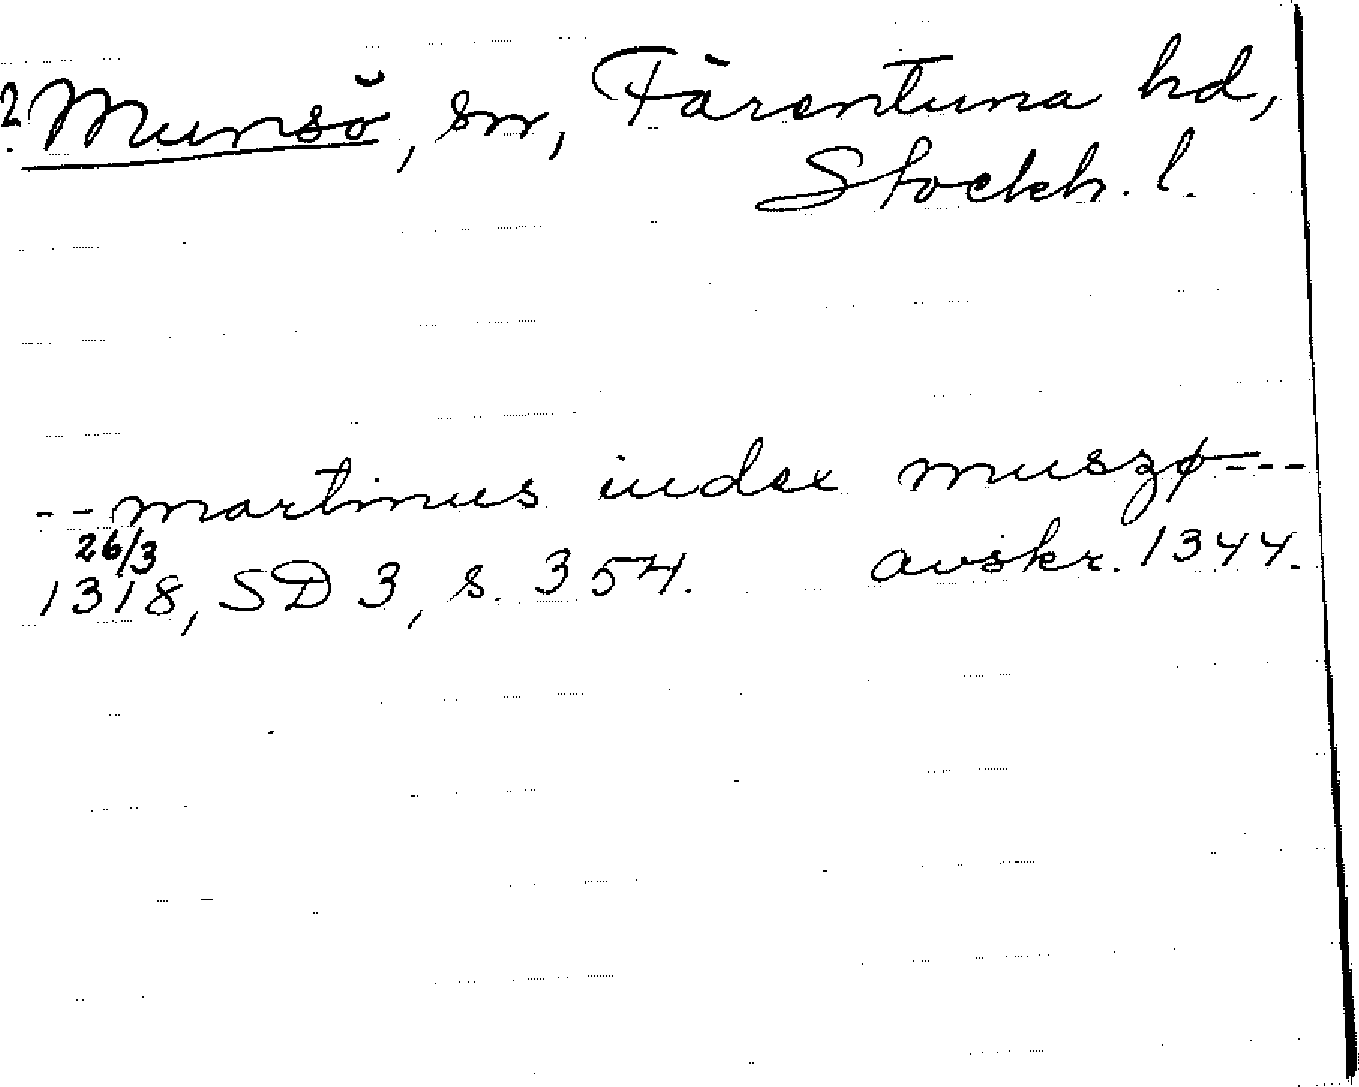 2. Munsö, sn, Färentuna hd,
Stockh. l.
-- martinus iudex muszø ---
26/3
1318, SD 3, s. 354. avskr. 1344.